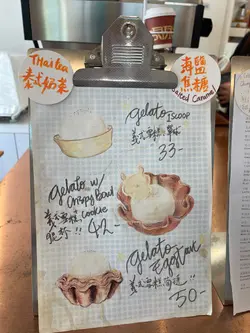 Thai tea
泰式奶茶
海鹽
焦糖
Salted Caramel
gelato
1scoop
義式雪糕 單球
33-
gelato w/
Crispy Bowl
義式雪糕 cookie
脆碗!! 42-
gelato
Egg
義式雪糕
!!
50-